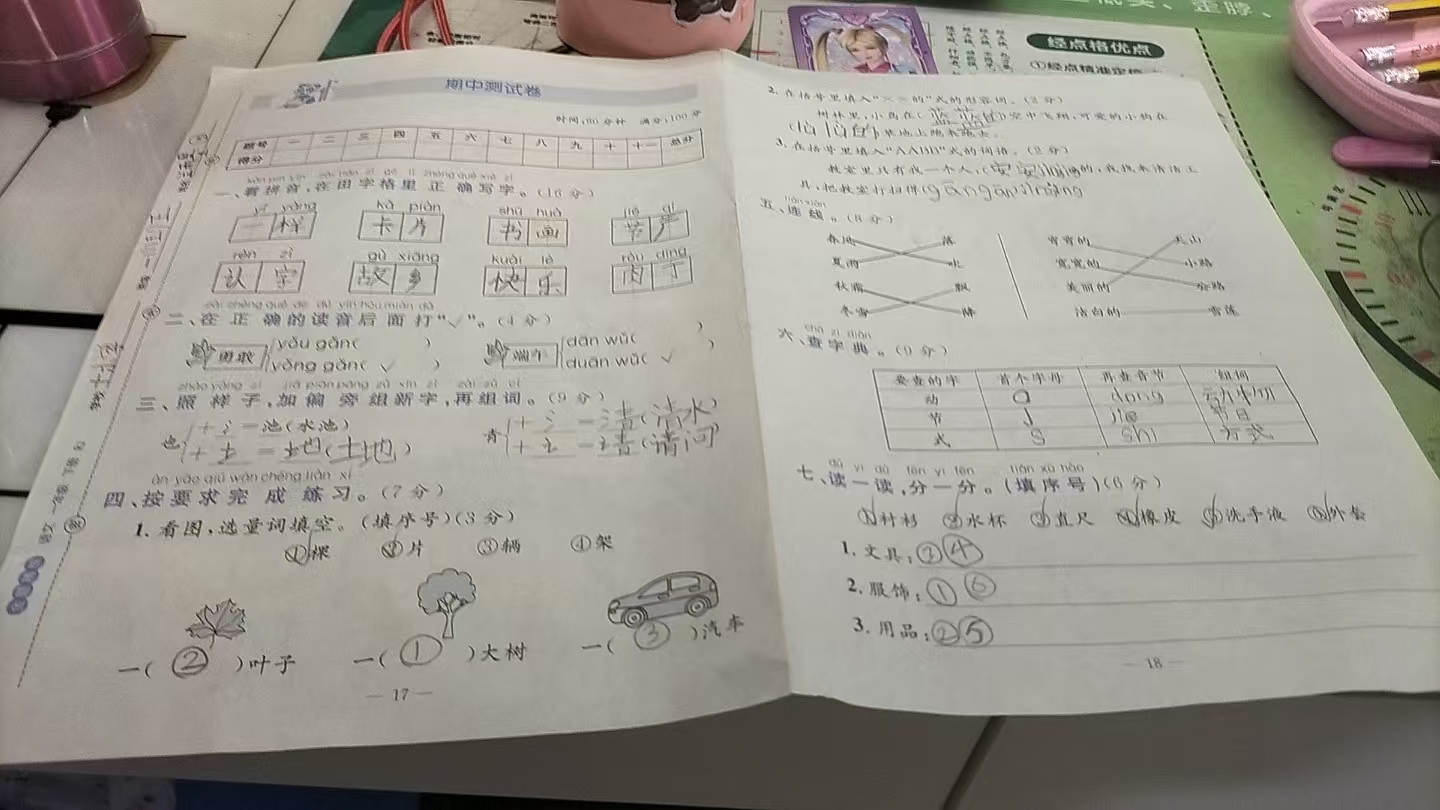 期中测试卷
时间:60分钟 满分:100分
题号 一 二 三 四 五 六 七 八 九 十 十一 总分
得分
一、看拼音,在田字格里正确写字。(16分)
yí yàng kǎ piàn shū huà jié
一样 卡片 书画 节
rèn zì gù xiāng kuài lè ròu dīng
认字 故乡 快乐 肉丁
zài zhèng què de dú yīn hòu miàn dǎ
二、在正确的读音后面打“√”。(4分)
勇敢 yǒu gǎn( ) 端午 dān wǔ( )
yǒng gǎn( √ ) duān wǔ( √ )
zhào yàng zi jiā piān páng zǔ xīn zì zài zǔ cí
三、照样子,加偏旁组新字,再组词。(9分)
也 +氵=池(水池) 青 +氵=清(清水)
+土=地(土地) =请(请问)
àn yāo qiú wán chéng liàn xí
四、按要求完成练习。(7分)
1. 看图,选量词填空。(填序号)(3分)
①棵 ②片 ③辆 ④架
一( ② )叶子 一( ① )大树 一( ③ )汽车
— 17 —
2. 在括号里填入“××的”式的形容词。(2分)
树林里,小鸟在(蓝蓝的)空中飞翔,可爱的小狗在
草地上跑来跑去。
3. 在括号里填入“AABB”式的词语。(2分)
教室里只有我一个人,(安安jìngjìng的,我找来清洁工
具,把教室打扫得(gāngānjìngjìng
lián xiàn
五、连线。(8分)
春风 落 弯弯的 天山
夏雨 水 宽宽的 小路
秋霜 飘 美丽的 公路
冬雪 降 洁白的 雪莲
chá zì diǎn
六、查字典。(9分)
要查的字 首个字母 再查音节 组词
动 dong
节 J jie 节日
式 S shi 方式
dú yi dú fēn yi fēn tián xù hào
七、读一读,分一分。(填序号)(6分)
①衬衫 ②水杯 ③直尺 ④橡皮 ⑤洗手液 ⑥外套
1. 文具:③④
2. 服饰:①⑥
3. 用品:②⑤
— 18 —
经点格优点